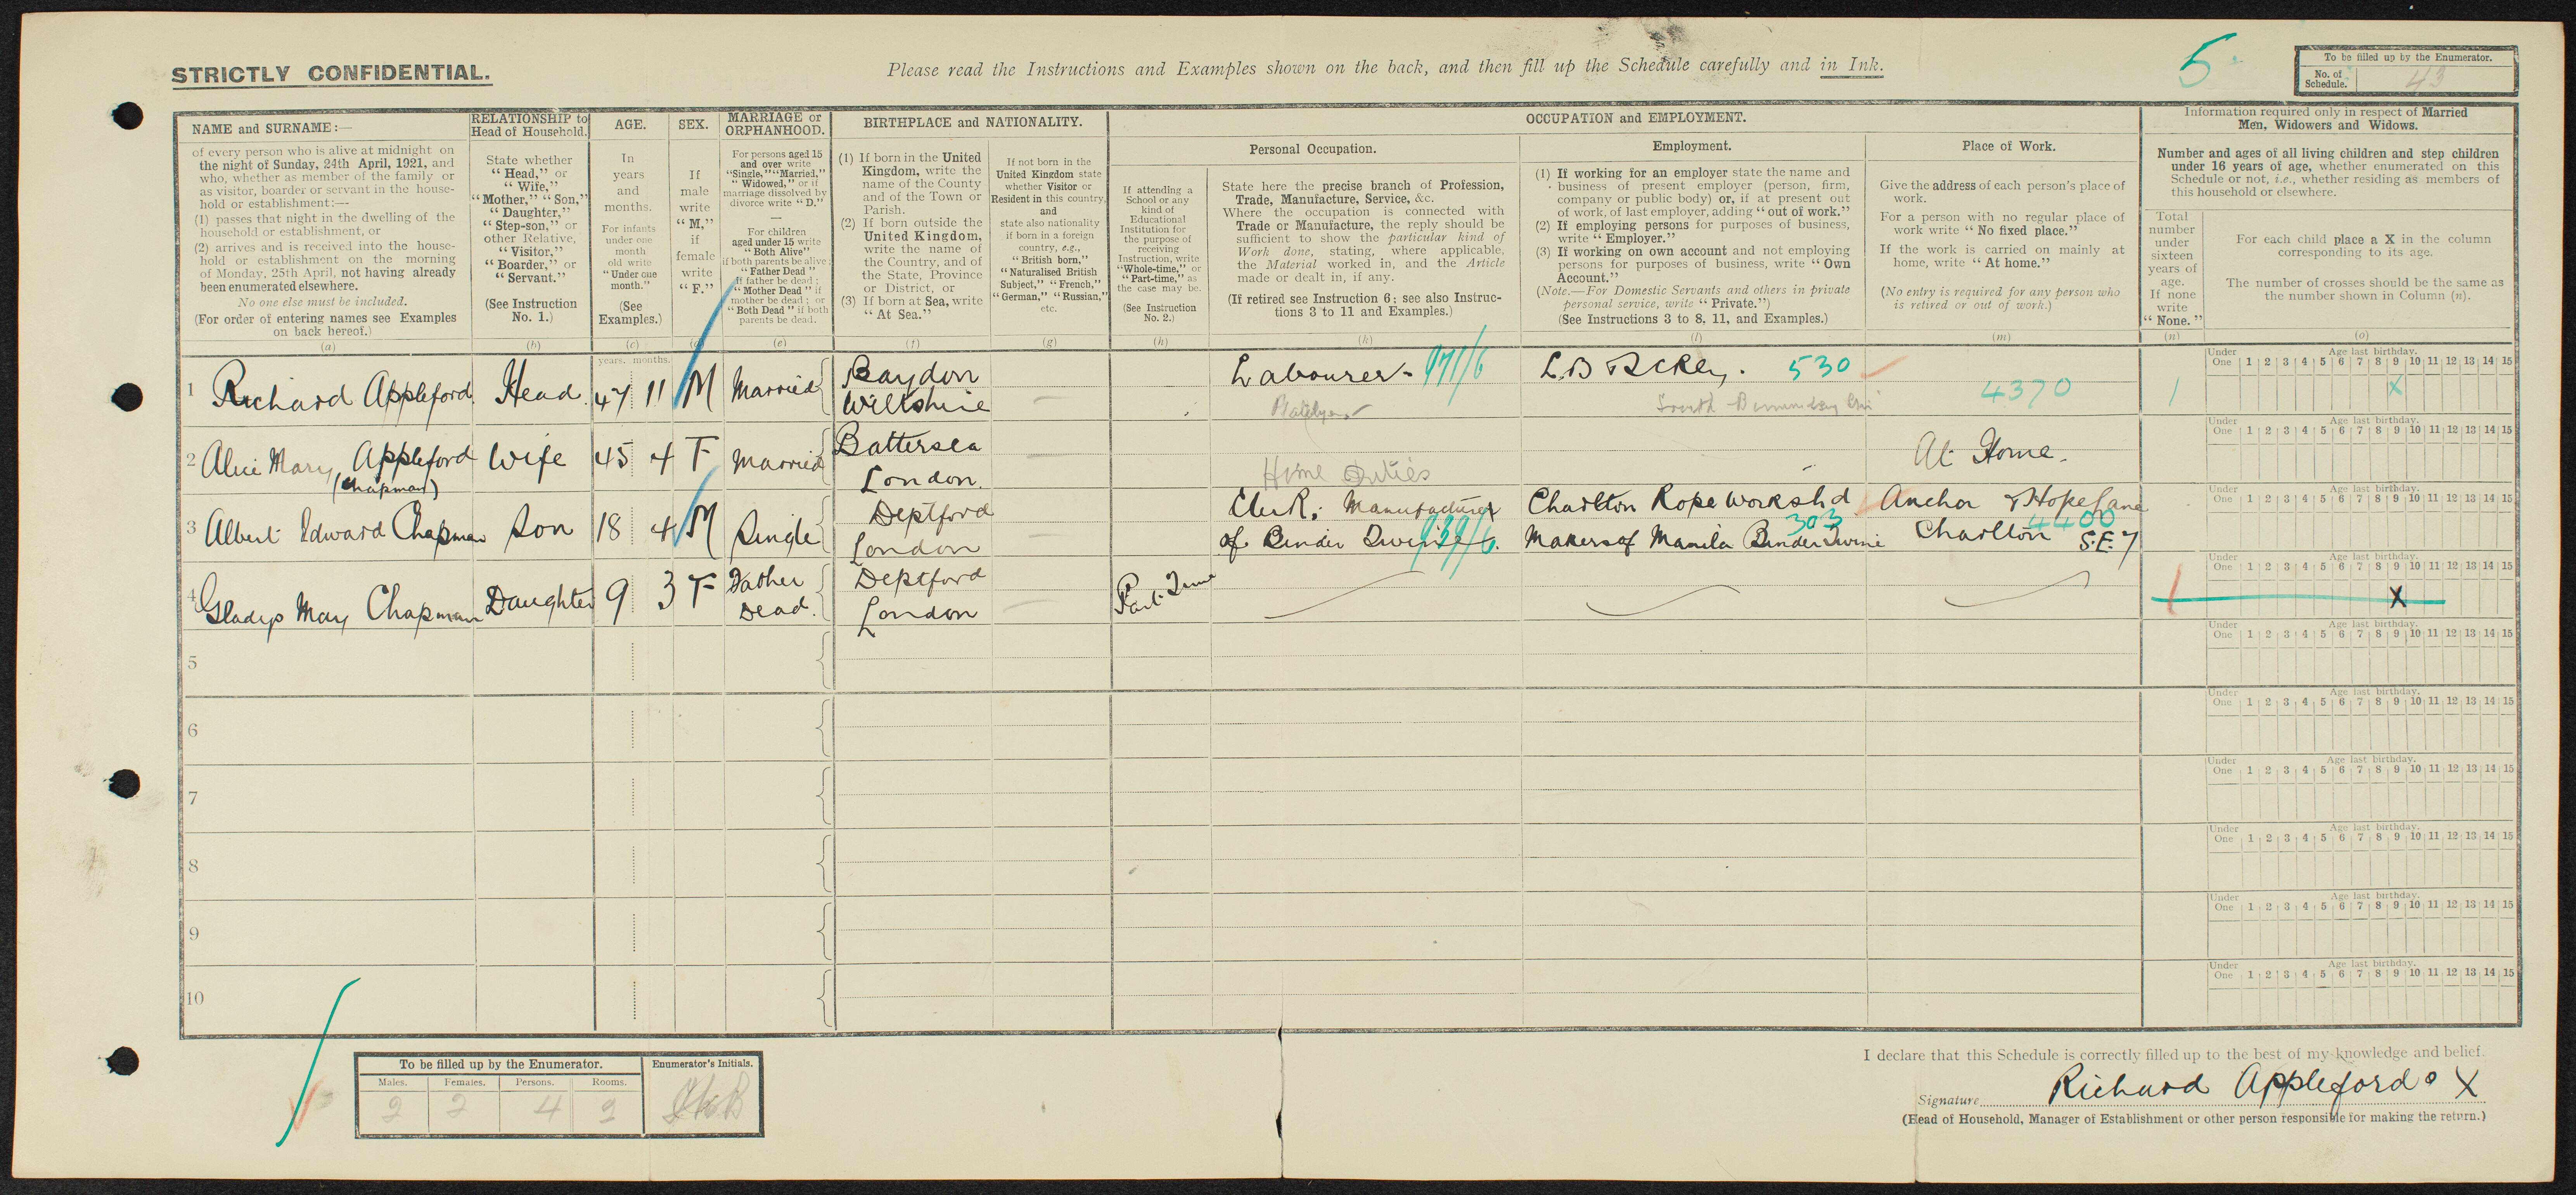 STRICTLY CONFIDENTIAL.
Please read the Instructions and Examples shown on the back, and then fill up the Schedule carefully and in Ink.
5
To be filled up by the Enumerator.
No. of Schedule. 43
NAME and SURNAME:—
of every person who is alive at midnight on
the night of Sunday, 24th April, 1921, and
who, whether as member of the family or
as visitor, boarder or servant in the house-
hold or establishment:—
(1) passes that night in the dwelling of the
household or establishment, or
(2) arrives and is received into the house-
hold or establishment on the morning
of Monday, 25th April, not having already
been enumerated elsewhere.
No one else must be included.
(For order of entering names see Examples
on back hereof.)
(a)
RELATIONSHIP to
Head of Household.
State whether
"Head," or
"Wife,"
"Mother," "Son,"
"Daughter,"
"Step-son," or
other Relative,
"Visitor,"
"Boarder," or
"Servant."
(See Instruction
No. 1.)
(b)
AGE.
In
years
and
months.
For infants
under one
month
old write
"Under one
month."
(See
Examples.)
(c)
SEX.
If
male
write
"M,"
if
female
write
"F."
(d)
MARRIAGE or
ORPHANHOOD.
For persons aged 15
and over write
"Single," "Married,"
"Widowed," or if
marriage dissolved by
divorce write "D."
—
For children
aged under 15 write
"Both Alive"
if both parents be alive;
"Father Dead"
if father be dead;
"Mother Dead" if
mother be dead; or
"Both Dead" if both
parents be dead.
(e)
BIRTHPLACE and NATIONALITY.
(1) If born in the United
Kingdom, write the
name of the County
and of the Town or
Parish.
(2) If born outside the
United Kingdom,
write the name of
the Country, and of
the State, Province
or District, or
(3) If born at Sea, write
"At Sea."
(f)
If not born in the
United Kingdom state
whether Visitor or
Resident in this country,
and
state also nationality
if born in a foreign
country, e.g.,
"British born,"
"Naturalised British
Subject," "French,"
"German," "Russian,"
etc.
(g)
OCCUPATION and EMPLOYMENT.
If attending a
School or any
kind of
Educational
Institution for
the purpose of
receiving
Instruction, write
"Whole-time," or
"Part-time," as
the case may be.
(See Instruction
No. 2.)
(h)
Personal Occupation.
State here the precise branch of Profession,
Trade, Manufacture, Service, &c.
Where the occupation is connected with
Trade or Manufacture, the reply should be
sufficient to show the particular kind of
Work done, stating, where applicable,
the Material worked in, and the Article
made or dealt in, if any.
(If retired see Instruction 6; see also Instruc-
tions 3 to 11 and Examples.)
(k)
Employment.
(1) If working for an employer state the name and
business of present employer (person, firm,
company or public body) or, if at present out
of work, of last employer, adding "out of work."
(2) If employing persons for purposes of business,
write "Employer."
(3) If working on own account and not employing
persons for purposes of business, write "Own
Account."
(Note.—For Domestic Servants and others in private
personal service, write "Private.")
(See Instructions 3 to 8, 11, and Examples.)
(l)
Place of Work.
Give the address of each person's place of
work.
For a person with no regular place of
work write "No fixed place."
If the work is carried on mainly at
home, write "At home."
(No entry is required for any person who
is retired or out of work.)
(m)
Information required only in respect of Married
Men, Widowers and Widows.
Number and ages of all living children and step children
under 16 years of age, whether enumerated on this
Schedule or not, i.e., whether residing as members of
this household or elsewhere.
Total
number
under
sixteen
years of
age.
If none
write
"None."
(n)
For each child place a X in the column
corresponding to its age.
The number of crosses should be the same as
the number shown in Column (n).
(o)
years. months.
Under One Age last birthday.
1 2 3 4 5 6 7 8 9 10 11 12 13 14 15
1 Richard Appleford. Head. 47 11 M Married Baydon Wiltshire — Labourer - 971/6 L.B & SCRly. 530 4370 1 X
Platelayer
Under One Age last birthday.
1 2 3 4 5 6 7 8 9 10 11 12 13 14 15
2 Alice Mary Appleford (Chapman) Wife 45 4 F Married Battersea London. — Home Duties At Home.
Under One Age last birthday.
1 2 3 4 5 6 7 8 9 10 11 12 13 14 15
3 Albert Edward Chapman Son 18 4 M Single Deptford London — Clerk; Manufacturer of Binder Twine. 939/6 Charlton Rope Works Ltd Makers of Manila Binder Twine 303 Anchor & Hope Lane Charlton S.E.7 4400
Under One Age last birthday.
1 2 3 4 5 6 7 8 9 10 11 12 13 14 15
4 Gladys May Chapman Daughter 9 3 F Father Dead. Deptford London — Part-Time 1 X
Under One Age last birthday.
1 2 3 4 5 6 7 8 9 10 11 12 13 14 15
5
Under One Age last birthday.
1 2 3 4 5 6 7 8 9 10 11 12 13 14 15
6
Under One Age last birthday.
1 2 3 4 5 6 7 8 9 10 11 12 13 14 15
7
Under One Age last birthday.
1 2 3 4 5 6 7 8 9 10 11 12 13 14 15
8
Under One Age last birthday.
1 2 3 4 5 6 7 8 9 10 11 12 13 14 15
9
Under One Age last birthday.
1 2 3 4 5 6 7 8 9 10 11 12 13 14 15
10
To be filled up by the Enumerator.
Males. Females. Persons. Rooms.
2 2 4 2
Enumerator's Initials.
I declare that this Schedule is correctly filled up to the best of my knowledge and belief.
Signature Richard Appleford X
(Head of Household, Manager of Establishment or other person responsible for making the return.)